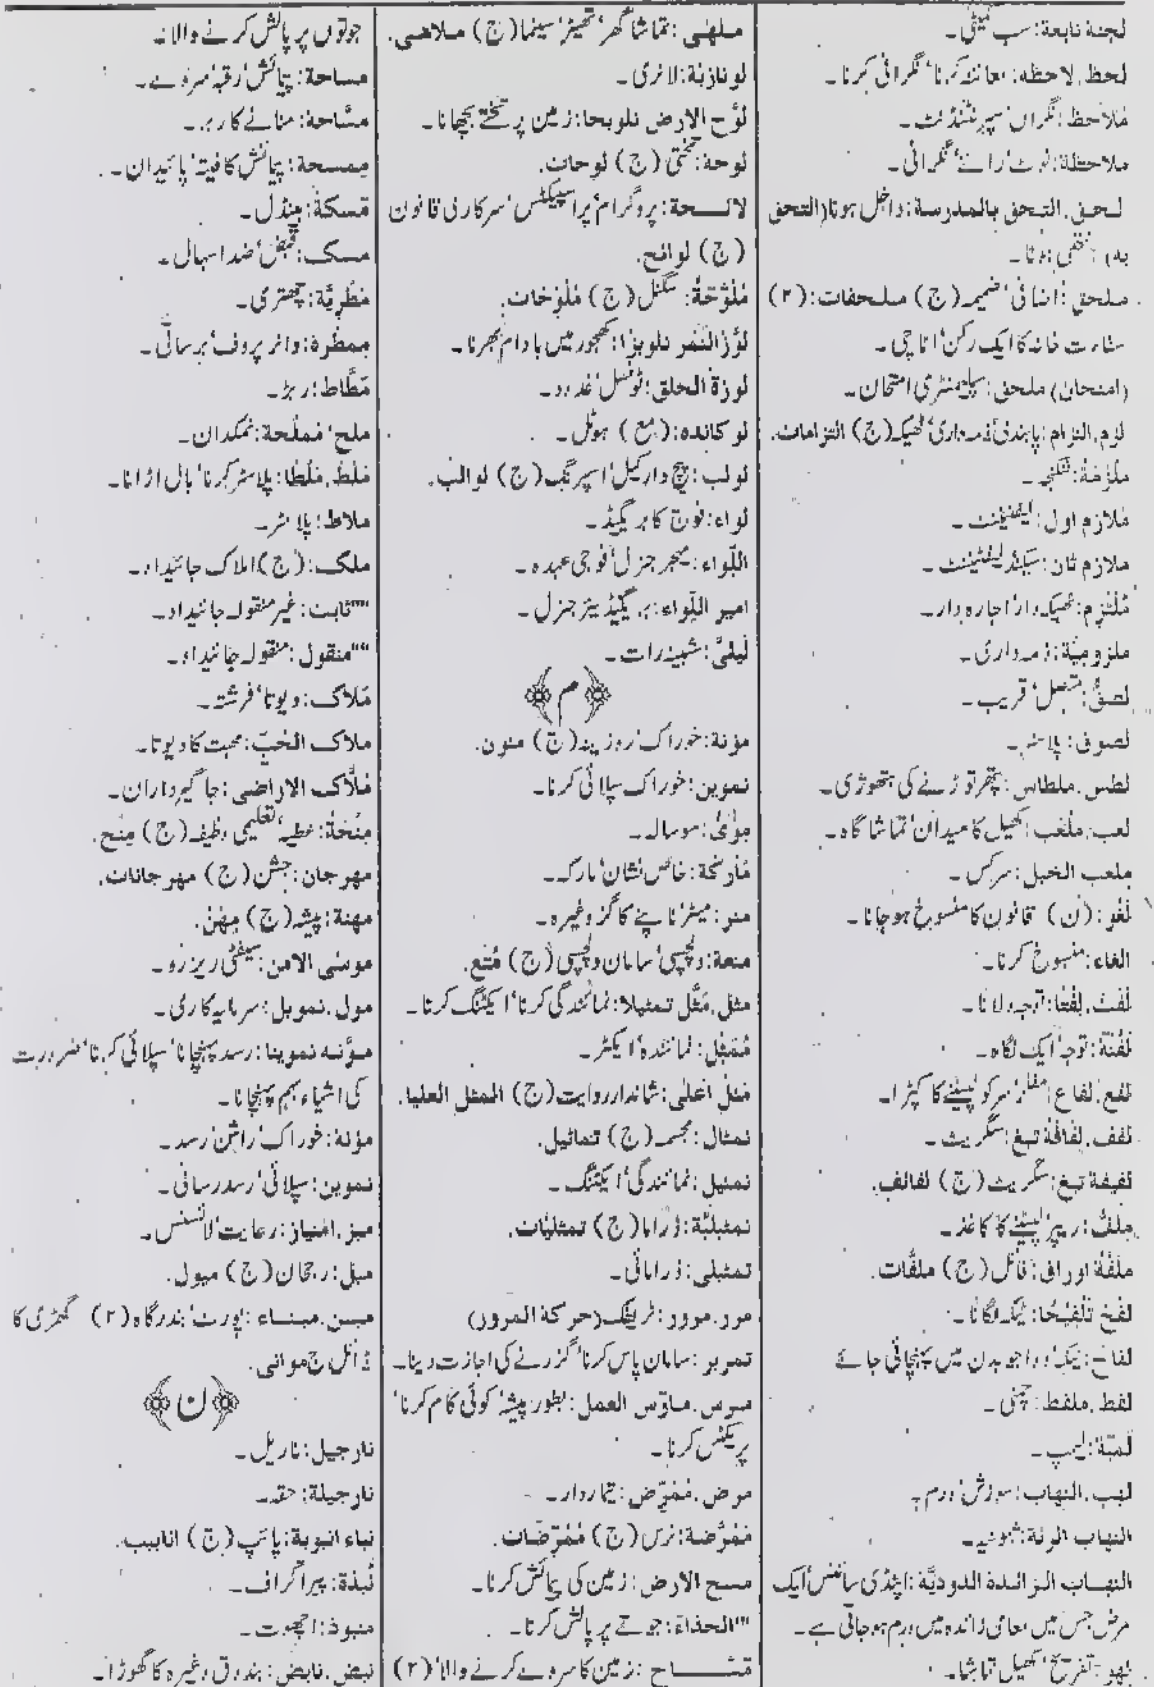 لجنة تابعة: سب کمیٹی۔
لحظ. لاحظہ: معائنہ کرنا' نگرانی کرنا۔
مُلاحظ: نگراں' سپرنٹنڈنٹ۔
ملاحظة: نوٹ' رائے' نگرانی۔
لحق. التحق بالمدرسة: داخل ہونا (التحق
به) ملحق ہونا۔
ملحق: اضافی' ضمیمہ (ج) ملحقات: (۲)
سفارت خانہ کا ایک رکن' اتاچی۔
(امتحان) ملحق: سپلیمنٹری امتحان۔
لزم. التزام: پابندی' ذمہ داری' ٹھیکہ (ج) التزامات.
ملزمة: شکنجہ۔
مُلازم اول: لیفٹیننٹ۔
ملازم ثان: سیکنڈ لیفٹیننٹ۔
مُلتزم: ٹھیکہ دار' اجارہ دار۔
ملزومیّة: ذمہ داری۔
لصق: متصل' قریب۔
لصوق: پلاسٹر۔
لطس. ملطاس: پتھر توڑنے کی ہتھوڑی۔
لعب. ملعب: کھیل کا میدان' تماشا گاہ۔
ملعب الخیل: سرکس۔
لغو: (ن) قانون کا منسوخ ہو جانا۔
الغاء: منسوخ کرنا۔
لفت. لفتا: توجہ دلانا۔
لفتة: توجہ' ایک نگاہ۔
لفع. لفاع: مفلر' سر کو لپیٹنے کا کپڑا۔
لفف. لفافة تبغ: سگریٹ۔
لفیفة تبغ: سگریٹ (ج) لفائف.
ملف: ریپر' لپیٹنے کا کاغذ۔
ملفّة اوراق: فائل (ج) ملفّات.
لقح تلقیحًا: ٹیکہ لگانا۔
لقاح: ٹیکہ' دوا جو بدن میں پہنچائی جائے
لقط. ملقط: چمٹی۔
لمبّة: لیمپ۔
لهب. التهاب: سوزش' ورم۔
التهاب الرئة: نمونیہ۔
التهاب الزائدة الدودیّة: اپنڈی سائٹس' ایک
مرض جس میں معائی زائدہ میں ورم ہو جاتی ہے۔
لهو: تفریح' کھیل تماشا۔
ملهٰی: تماشا گھر' تھیٹر' سینما (ج) ملاهی.
لوتاریّة: لاٹری۔
لوّح الارض تلویحا: زمین پر تختے بچھانا۔
لوحة: تختی (ج) لوحات.
لائحة: پروگرام' پراسپیکٹس' سرکاری قانون
(ج) لوائح.
مُلَوّحَةٌ: سگنل (ج) مُلَوّحات.
لوّز التّمر تلویزا: کھجور میں بادام بھرنا۔
لوزة الحلق: ٹونسل' غدود۔
لوکاندہ: (مع) ہوٹل۔
لولب: پیچ دار کیل' اسپرنگ (ج) لوالب.
لواء: فوج کا بریگیڈ۔
اللّواء: میجر جنرل' فوجی عہدہ۔
امیر اللّواء: بریگیڈیئر جنرل۔
لَیلیّ: شبینہ رات۔
م
مؤنة: خوراک' روزینہ (ج) مئون.
تموین: خوراک سپلائی کرنا۔
مَارکة: خاص نشان' مارکہ۔
متر: میٹر' ناپنے کا گز وغیرہ۔
متعة: دلچسپی' سامان دلچسپی (ج) مُتَع.
مثل. مَثَّل تمثیلا: نمائندگی کرنا' ایکٹنگ کرنا۔
مُمَثِّل: نمائندہ' ایکٹر۔
مثل اعلٰی: شاندار روایت (ج) المثل العلیا.
تمثال: مجسمہ (ج) تماثیل.
تمثیل: نمائندگی' ایکٹنگ۔
تمثیلیّة: ڈراما (ج) تمثلیّات.
تمثیلی: ڈرامائی۔
مرر. مرور: ٹریفک (حرکة المرور)
تمریر: سامان پاس کرنا' گزرنے کی اجازت دینا۔
مرس. مارس العمل: بطور پیشہ کوئی کام کرنا'
پریکٹس کرنا۔
مرض. مُمَرِّض: تیماردار۔
مُمَرِّضة: نرس (ج) مُمَرِّضات.
مسح الارض: زمین کی پیمائش کرنا۔
""الحذاء: جوتے پر پالش کرنا۔
مسّاح: زمین کا سروے کرنے والا' (۲)
جوتوں پر پالش کرنے والا۔
مساحة: پیمائش' رقبہ' سروے۔
مسّاحة: مٹانے کا ربر۔
ممسحة: پیمائش کا فیتہ' پائیدان۔
مسکة: ہینڈل۔
مسک: قبض' ضد اسہال۔
مَطَرِیَّة: چھتری۔
ممطرہ: واٹر پروف' برساتی۔
مَطَّاط: ربڑ۔
ملح' مَملَحة: نمکدان۔
مَلَط. مَلْطا: پلاستر کرنا' بال اڑانا۔
ملاط: پلاسٹر۔
ملک: (ج) املاک جائیداد۔
""ثابت: غیر منقولہ جائیداد۔
""منقول: منقولہ جائیداد۔
مَلاک: دیوتا' فرشتہ۔
ملاک الحُبّ: محبت کا دیوتا۔
مُلّاک الاراضی: جاگیرداران۔
مِنْحَة: عطیہ' تعلیمی وظیفہ (ج) مِنَح.
مهرجان: جشن (ج) مهرجانات.
مهنة: پیشہ (ج) مِهَنٌ.
موسٰی الامن: سیفٹی ریزر۔
مول. تمویل: سرمایہ کاری۔
موّنه تموینا: رسد پہنچانا' سپلائی کرنا' ضرورت
کی اشیاء بہم پہنچانا۔
مؤنة: خوراک' راشن' رسد۔
تموین: سپلائی' رسد رسانی۔
میز. امتیاز: رعایت' لائسنس۔
میل: رجحان (ج) میول.
مین. میناء: پورٹ' بندرگاہ (۲) گھڑی کا
ڈائل ج موانی.
ن
نارجیل: ناریل۔
نارجیلة: حقہ۔
نباء انبوبة: پائپ (ج) انابیب.
نُبذة: پیراگراف۔
منبوذ: اچھوت۔
نبض. نابض: بندوق وغیرہ کا گھوڑا۔